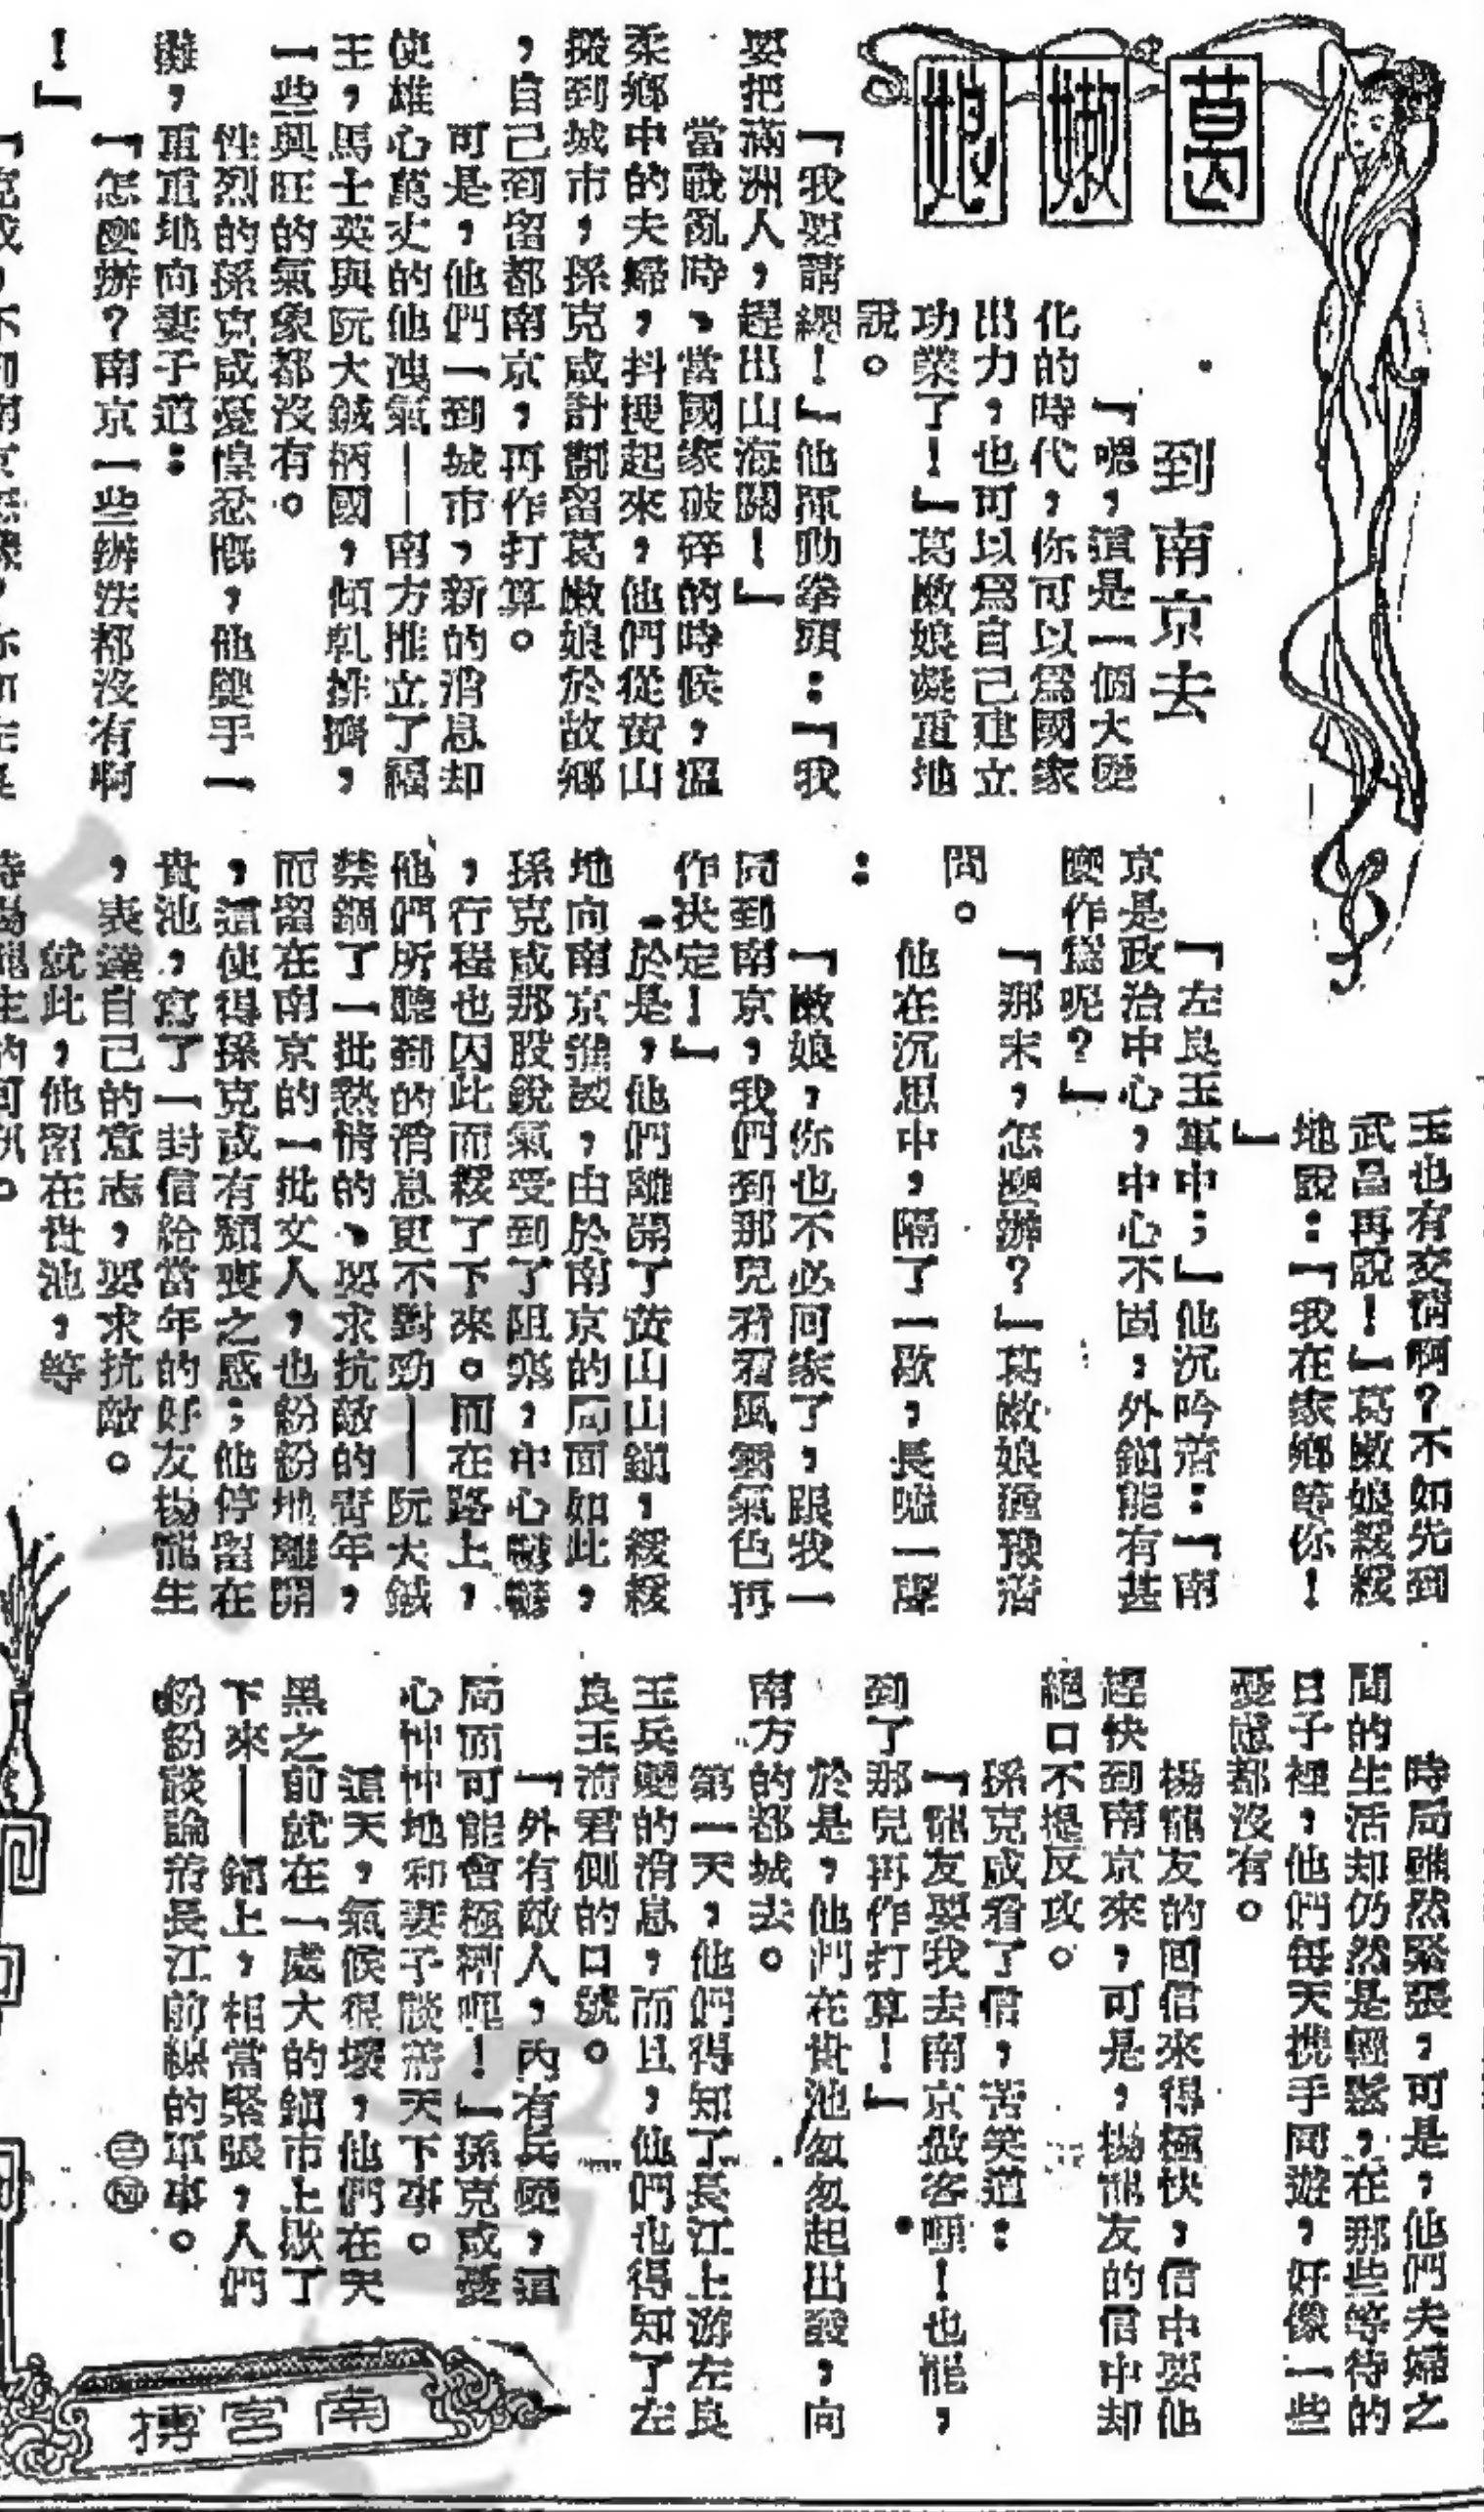 葛嫩娘
到南京去
「嗯，這是一個大變
化的時代，你可以爲國家
出力，也可以爲自己建立
功業了！」葛嫩娘凝重地
說。
「我要請纓！」他揮動拳頭：「我
要把滿洲人，趕出山海關！」
當戰亂時、當國家破碎的時候，溫
柔鄉中的夫婦，抖擻起來，他們從黃山
搬到城市，孫克咸計劃留葛嫩娘於故鄉
，自己到留都南京，再作打算。
可是，他們一到城市，新的消息却
使雄心萬丈的他洩氣——南方推立了福
王，馬士英與阮大鋮柄國，傾軋排擠，
一些興旺的氣象都沒有。
性烈的孫克咸憂惶忿慨，他雙手一
攤，重重地向妻子道：
「怎麼辦？南京一些辦法都沒有啊
！」
「克咸，不到南京
玉也有交情啊？不如先到
武昌再說！」葛嫩娘緩緩
地說：「我在家鄉等你！
」
「左良玉軍中；」他沉吟着：「南
京是政治中心，中心不固，外鎮能有甚
麼作爲呢？」
「那末，怎麼辦？」葛嫩娘猶豫着
問。
他在沉思中，隔了一歇，長噓一聲
：
「嫩娘，你也不必回家了，跟我一
同到南京，我們到那兒看看風雲氣色再
作決定！」
於是，他們離開了黃山山鎮，緩緩
地向南京進發，由於南京的局面如此，
孫克咸那股銳氣受到了阻喪，中心鬱鬱
，行程也因此而緩了下來。而在路上，
他們所聽到的消息更不對勁——阮大鋮
禁錮了一批熱情的、要求抗敵的青年，
而留在南京的一批文人，也紛紛地離開
，這使得孫克咸有頹喪之感；他停留在
貴池，寫了一封信給當年的好友楊龍生
，表達自己的意志，要求抗敵。
就此，他留在貴池，等
待楊龍生的回訊。
時局雖然緊張，可是，他們夫婦之
間的生活却仍然是輕鬆，在那些等待的
日子裡，他們每天携手同遊，好像一些
憂慮都沒有。
楊龍友的回信來得極快，信中要他
趕快到南京來，可是，楊龍友的信中却
絕口不提反攻。
孫克咸看了信，苦笑道：
「龍友要我去南京做客哩！也罷，
到了那兒再作打算！」
於是，他們在貴池匆匆起出發，向
南方的都城去。
第一天，他們得知了長江上游左良
玉兵變的消息，而且，他們也得知了左
良玉清君側的口號。
「外有敵人，內有兵變，這
局面可能會極糟呢！」孫克咸憂
心忡忡地和妻子談着天下事。
這天，氣候很壞，他們在天
黑之前就在一處大的鎮市上歇了
下來——鎮上，相當緊張，人們
紛紛談論着長江前線的軍事。
南宮搏